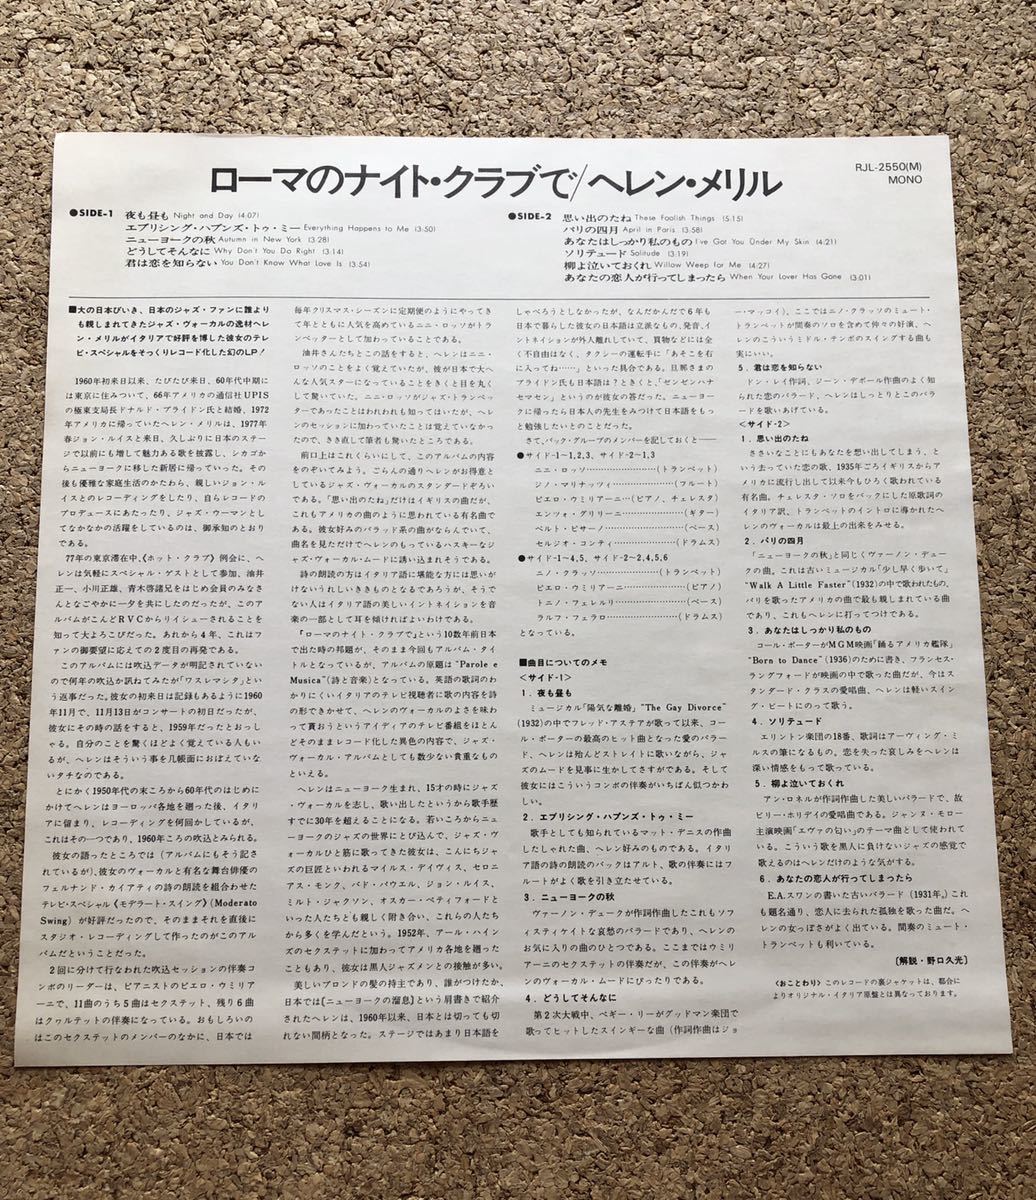 ローマのナイト・クラブで/ヘレン・メリル
RJL-2550(M)
MONO
●SIDE-1
夜も昼も Night and Day (4:07)
エブリシング・ハプンズ・トゥ・ミー Everything Happens to Me (3:50)
ニューヨークの秋 Autumn in New York (3:28)
どうしてそんなに Why Don't You Do Right (3:14)
君は恋を知らない You Don't Know What Love Is (3:54)
●SIDE-2
思い出のたね These Foolish Things (5:15)
パリの四月 April in Paris (3:58)
あなたはしっかり私のもの I've Got You Under My Skin (4:21)
ソリテュード Solitude (3:19)
柳よ泣いておくれ Willow Weep for Me (4:27)
あなたの恋人が行ってしまったら When Your Lover Has Gone (3:01)
■大の日本びいき、日本のジャズ・ファンに誰より
も親しまれてきたジャズ・ヴォーカルの逸材ヘレ
ン・メリルがイタリアで好評を博した彼女のテレ
ビ・スペシャルをそっくりレコード化した幻のLP!
1960年初来日以来、たびたび来日、60年代中期に
は東京に住みついて、66年アメリカの通信社UPIS
の極東支局長ドナルド・ブライドン氏と結婚、1972
年アメリカに帰っていたヘレン・メリルは、1977年
春ジョン・ルイスと来日、久しぶりに日本のステー
ジで以前にも増して魅力ある歌を披露し、シカゴか
らニューヨークに移した新居に帰っていった。その
後も優雅な家庭生活のかたわら、親しいジョン・ル
イスとのレコーディングをしたり、自らレコードの
プロデュースにあたったり、ジャズ・ウーマンとし
てなかなかの活躍をしているのは、御承知のとおり
である。
77年の東京滞在中、《ホット・クラブ》例会に、ヘ
レンは気軽にスペシャル・ゲストとして参加、油井
正一、小川正雄、青木啓諸兄をはじめ会員のみなさ
んとなごやかに一夕を共にしたのだったが、このア
ルバムがこんどRVCからリイシューされることを
知って大よろこびだった。あれから4年、これはフ
ァンの御要望に応えての2度目の再発である。
このアルバムには吹込データが明記されていない
ので何年の吹込か訊ねてみたが「ワスレマシタ」と
いう返事だった。彼女の初来日は記録もあるように1960
年11月で、11月13日がコンサートの初日だったが、
彼女にその時の話をすると、1959年だったとおっし
ゃる。自分のことを驚くほどよく覚えている人もい
るが、ヘレンはそういう事を几帳面におぼえていな
いタチなのである。
とにかく1950年代の末ころから60年代のはじめに
かけてヘレンはヨーロッパ各地を廻った後、イタリ
アに留まり、レコーディングを何回かしているが、
これはその一つであり、1960年ころの吹込とみられる。
彼女の語ったところでは(アルバムにもそう記さ
れているが)、彼女のヴォーカルと有名な舞台俳優の
フェルナンド・カイアティの詩の朗読を組合わせた
テレビ・スペシャル《モデラート・スイング》(Moderato
Swing)が好評だったので、そのままそれを直後に
スタジオ・レコーディングして作ったのがこのアル
バムだということだった。
2回に分けて行なわれた吹込セッションの伴奏コ
ンボのリーダーは、ピアニストのピエロ・ウミリア
ーニで、11曲のうち5曲はセクステット、残り6曲
はクヮルテットの伴奏になっている。おもしろいの
はこのセクステットのメンバーのなかに、日本では
毎年クリスマス・シーズンに定期便のようにやってき
て年とともに人気を高めているニニ・ロッソがトラン
ペッターとして加わっていることである。
油井さんたちとこの話をすると、ヘレンはニニ・
ロッソのことをよく覚えていたが、彼が日本で大へ
んな人気スターになっていることをきくと目を丸く
して驚いていた。ニニ・ロッソがジャズ・トランペッ
ターであったことはわれわれも知ってはいたが、ヘレ
ンのセッションに加わっていたことは覚えていなかっ
たので、きき直して筆者も驚いたところである。
前口上はこれくらいにして、このアルバムの内容
をのぞいてみよう。ごらんの通りヘレンがお得意と
しているジャズ・ヴォーカルのスタンダードぞろい
である。「思い出のたね」だけはイギリスの曲だが、こ
れもアメリカの曲のように思われている有名曲であ
る。彼女好みのバラード系の曲がならんでいて、
曲名を見ただけでヘレンのもっているハスキーなジ
ャズ・ヴォーカル・ムードに誘い込まれそうである。
詩の朗読の方はイタリア語に堪能な方には思いが
けないうれしいききものとなるであろうが、そうで
ない人はイタリア語の美しいイントネイションを音
楽の一部として耳を傾ければよいわけである。
「ローマのナイト・クラブで」という10数年前日本
で出た時の邦題が、そのまま今回もアルバム・タイ
トルとなっているが、アルバムの原題は"Parole e
Musica"(詩と音楽)となっている。英語の歌詞のわ
かりにくいイタリアのテレビ視聴者に歌の内容を詩
の形できかせて、ヘレンのヴォーカルのよさを味わ
って貰おうというアイディアのテレビ番組をほとん
どそのままレコード化した異色の内容で、ジャズ・
ヴォーカル・アルバムとしても数少ない貴重なもの
といえる。
ヘレンはニューヨーク生まれ、15才の時にジャズ
・ヴォーカルを志し、歌い出したというから歌手歴
すでに30年を超えることになる。若いころからニュ
ーヨークのジャズの世界にとび込んで、ジャズ・ヴ
ォーカルひと筋に歌ってきた彼女は、こんにちジャ
ズの巨匠といわれるマイルス・デイヴィス、セロニ
アス・モンク、バド・パウエル、ジョン・ルイス、
ミルト・ジャクソン、オスカー・ペティフォードと
いった人たちとも親しく附き合い、これらの人たち
から多くを学んだという。1952年、アール・ハイン
ズのセクステットに加わってアメリカ各地を廻った
こともあり、彼女は黒人ジャズメンとの接触が多い。
美しいブロンドの髪の持主であり、誰がつけたか、
日本では[ニューヨークの溜息]という肩書きで紹介
されたヘレンは、1960年以来、日本とは切っても切
れない間柄となった。ステージではあまり日本語を
しゃべろうとしなかったが、なんだかんだで6年も
日本で暮した彼女の日本語は立派なもの、発音、イ
ントネイションが外人離れしていて、買物などには全
く不自由はなく、タクシーの運転手に「あそこを右
に入ってね……」といった具合である。旦那さまの
ブライドン氏も日本語は?ときくと、「ゼンゼンハナ
セマセン」というのが彼女の答だった。ニューヨー
クに帰ったら日本人の先生をみつけて日本語をもっ
と勉強したいとのことだった。
さて、バック・グループのメンバーを記しておくと――
●サイド-1~1,2,3、サイド-2~1,3
ニニ・ロッソ…………………(トランペット)
ジノ・マリナッツィ……………(フルート)
ピエロ・ウミリアーニ……(ピアノ、チェレスタ)
エンツォ・グリリーニ……………(ギター)
ベルト・ピサーノ…………………(ベース)
セルジオ・コンティ………………(ドラムス)
●サイド-1~4,5、サイド-2~2,4,5,6
ニノ・クラッソ…………………(トランペット)
ピエロ・ウミリアーニ……………(ピアノ)
トニノ・フェレルリ………………(ベース)
ラルフ・フェラロ…………………(ドラムス)
となっている。
■曲目についてのメモ
<サイド-1>
1. 夜も昼も
ミュージカル「陽気な離婚」"The Gay Divorce"
(1932)の中でフレッド・アステアが歌って以来、コー
ル・ポーターの最高のヒット曲となった愛のバラー
ド、ヘレンは殆んどストレイトに歌いながら、ジャ
ズのムードを見事に生かしてさすがである。そして
彼女にはこういうコンボの伴奏がいちばん似つかわ
しい。
2. エブリシング・ハプンズ・トゥ・ミー
歌手としても知られているマット・デニスの作曲
したしゃれた曲、ヘレン好みのものである。イタリ
ア語の詩の朗読のバックはアルト、歌の伴奏にはフ
ルートがよく歌を引き立たせている。
3. ニューヨークの秋
ヴァーノン・デュークが作詞作曲したこれもソフ
ィスティケイトな哀愁のバラードであり、ヘレンの
お気に入りの曲のひとつである。ここまではウミリ
アーニのセクステットの伴奏だが、この伴奏がヘレ
ンのヴォーカル・ムードにぴったりである。
4. どうしてそんなに
第2次大戦中、ペギー・リーがグッドマン楽団で
歌ってヒットしたスインギーな曲(作詞作曲はジョ
ー・マッコイ)、ここではニノ・クラッソのミュート・
トランペットが間奏のソロを含めて仲々の好演、ヘ
レンのこういうミドル・テンポのスイングする曲も
実にいい。
5. 君は恋を知らない
ドン・レイ作詞、ジーン・デポール作曲のよく知
られた恋のバラード、ヘレンはしっとりとこのバラ
ードを歌いあげている。
<サイド-2>
1. 思い出のたね
ささいなことにもあなたを想い出してしまう、と
いう去っていった恋の歌、1935年ごろイギリスからア
メリカに流行し出して以来今もひろく歌われている
有名曲。チェレスタ・ソロをバックにした原歌詞の
イタリア訳、トランペットのイントロに導かれたヘ
レンのヴォーカルは最上の出来をみせる。
2. パリの四月
「ニューヨークの秋」と同じくヴァーノン・デュー
クの曲。これは古いミュージカル「少し早く歩いて」
"Walk A Little Faster"(1932)の中で歌われたもの、
パリを歌ったアメリカの曲で最も親しまれている曲
であり、これもヘレンに打ってつけである。
3. あなたはしっかり私のもの
コール・ポーターがMGM映画「踊るアメリカ艦隊」
"Born to Dance"(1936)のために書き、フランセス・
ラングフォードが映画の中で歌った曲だが、今はス
タンダード・クラスの愛唱曲、ヘレンは軽いスイン
グ・ビートにのって歌う。
4. ソリテュード
エリントン楽団の18番、歌詞はアーヴィング・ミ
ルスの筆になるもの。恋を失った哀しみをヘレンは
深い情感をもって歌っている。
5. 柳よ泣いておくれ
アン・ロネルが作詞作曲した美しいバラードで、故
ビリー・ホリデイの愛唱曲である。ジャンヌ・モロー
主演映画「エヴァの匂い」のテーマ曲として使われて
いる。こういう歌を黒人に負けないジャズの感覚で
歌えるのはヘレンだけのような気がする。
6. あなたの恋人が行ってしまったら
E.A.スワンの書いた古いバラード(1931年)。これ
も題名通り、恋人に去られた孤独を歌った曲だ。ヘ
レンの女っぽさがよく出ている。間奏のミュート・
トランペットも利いている。
[解説・野口久光]
<おことわり>このレコードの裏ジャケットは、都合に
よりオリジナル・イタリア原盤とは異なっております。